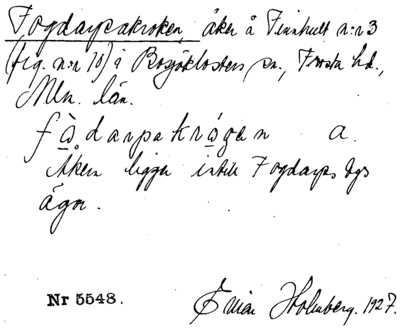 Fogdarpakroken, åker å Finnhult n:r 3
(fig. n:r 70) i Bosjöklosters sn., Frosta hd.,
Mlm. län.
få̀darpakrågen a.
Åkern ligger intill Fogdarps bys
ägor.
Nr 5548. Einar Holmberg. 1927.